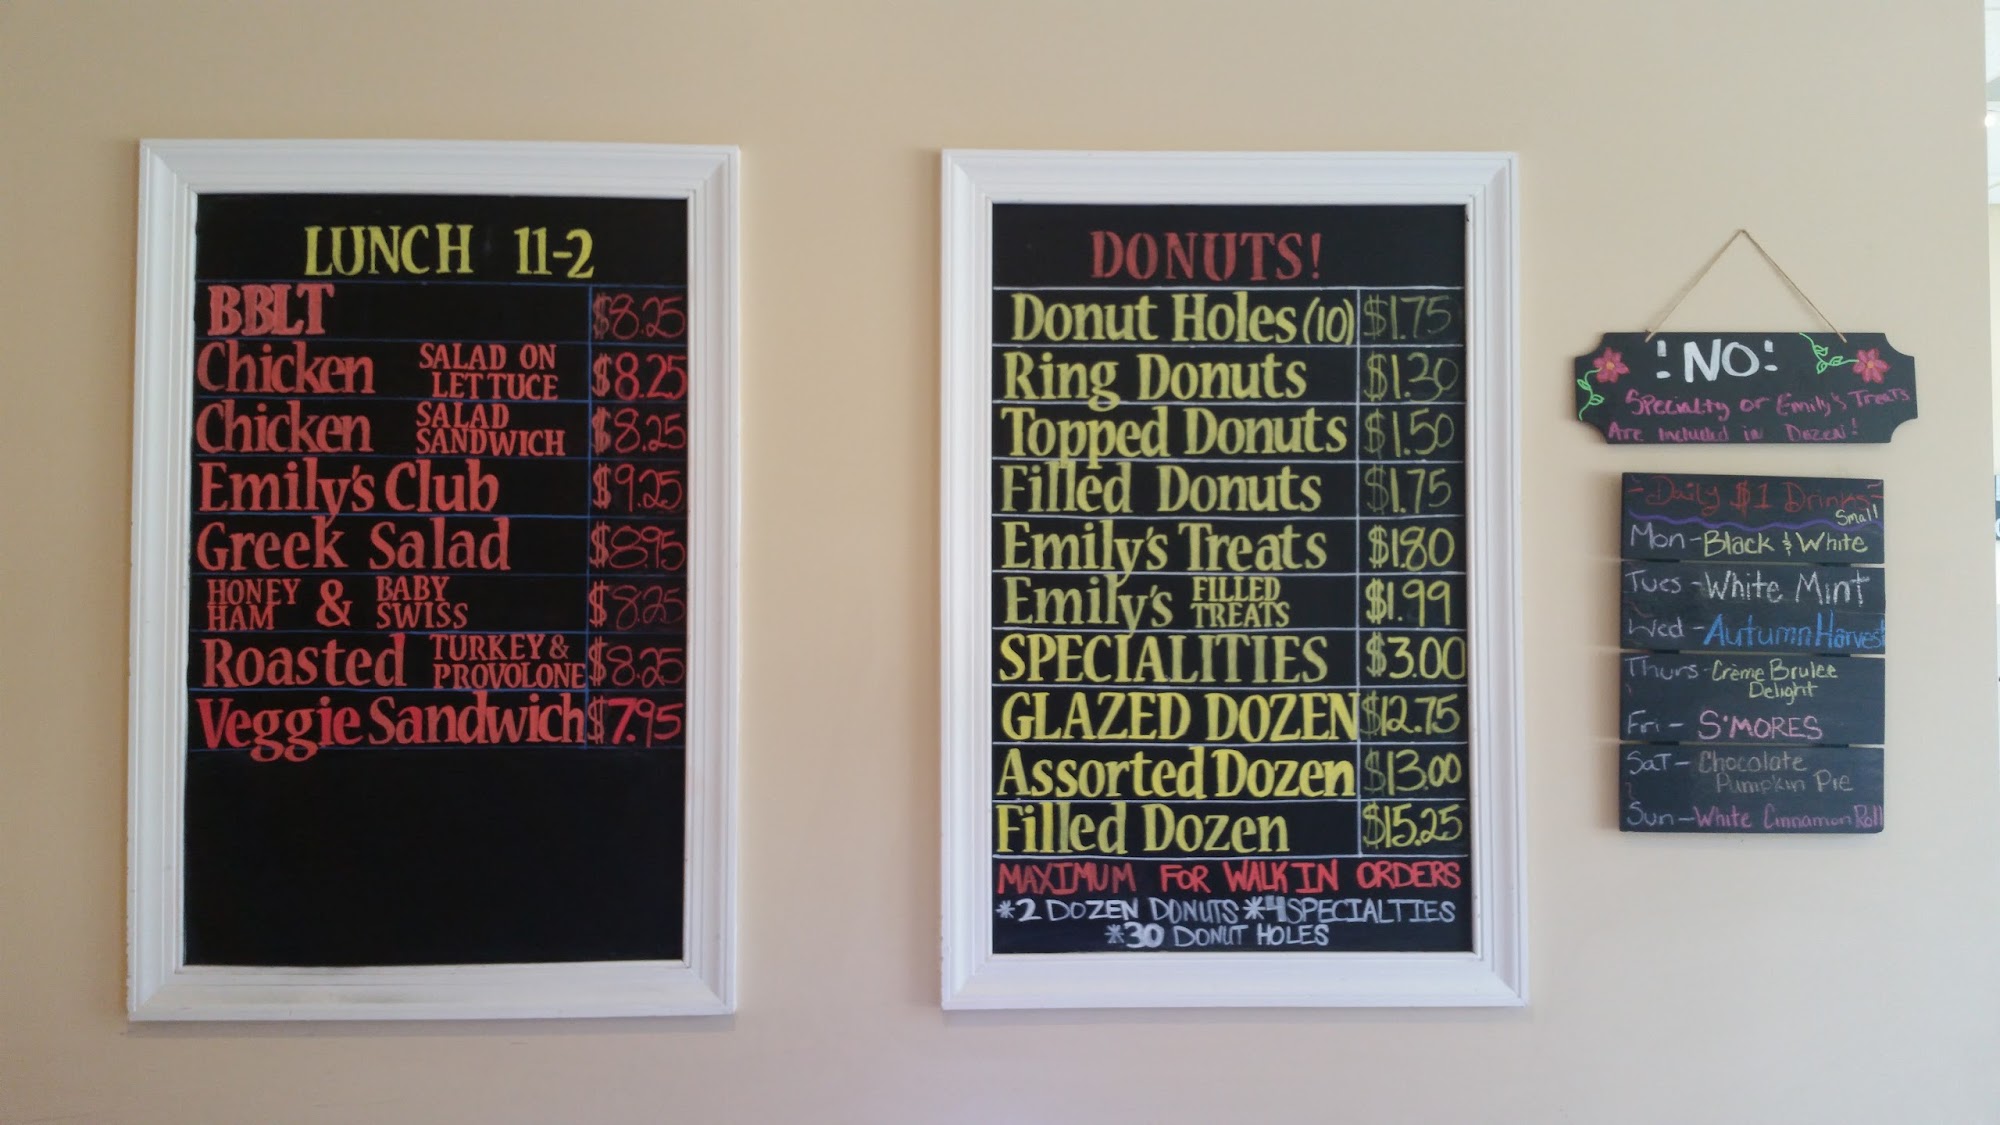 LUNCH 11-2
BBLT $8.25
Chicken SALAD ON LETTUCE $8.25
Chicken SALAD SANDWICH $8.25
Emily's Club $9.25
Greek Salad $8.95
HONEY HAM & BABY SWISS $8.25
Roasted TURKEY & PROVOLONE $8.25
Veggie Sandwich $7.95
DONUTS!
Donut Holes (10) $1.75
Ring Donuts $1.30
Topped Donuts $1.50
Filled Donuts $1.75
Emily's Treats $1.80
Emily's FILLED TREATS $1.99
SPECIALITIES $3.00
GLAZED DOZEN $12.75
Assorted Dozen $13.00
Filled Dozen $15.25
MAXIMUM FOR WALK IN ORDERS
*2 DOZEN DONUTS *4 SPECIALTIES
*30 DONUT HOLES
!NO!
Specialty or Emily's Treats
Are included in Dozen!
-Daily $1 Drinks-
Small
Mon - Black & White
Tues - White Mint
Wed - Autumn Harvest
Thurs - Crème Brulee
Delight
Fri - S'MORES
Sat - Chocolate
Pumpkin Pie
Sun - White Cinnamon Roll